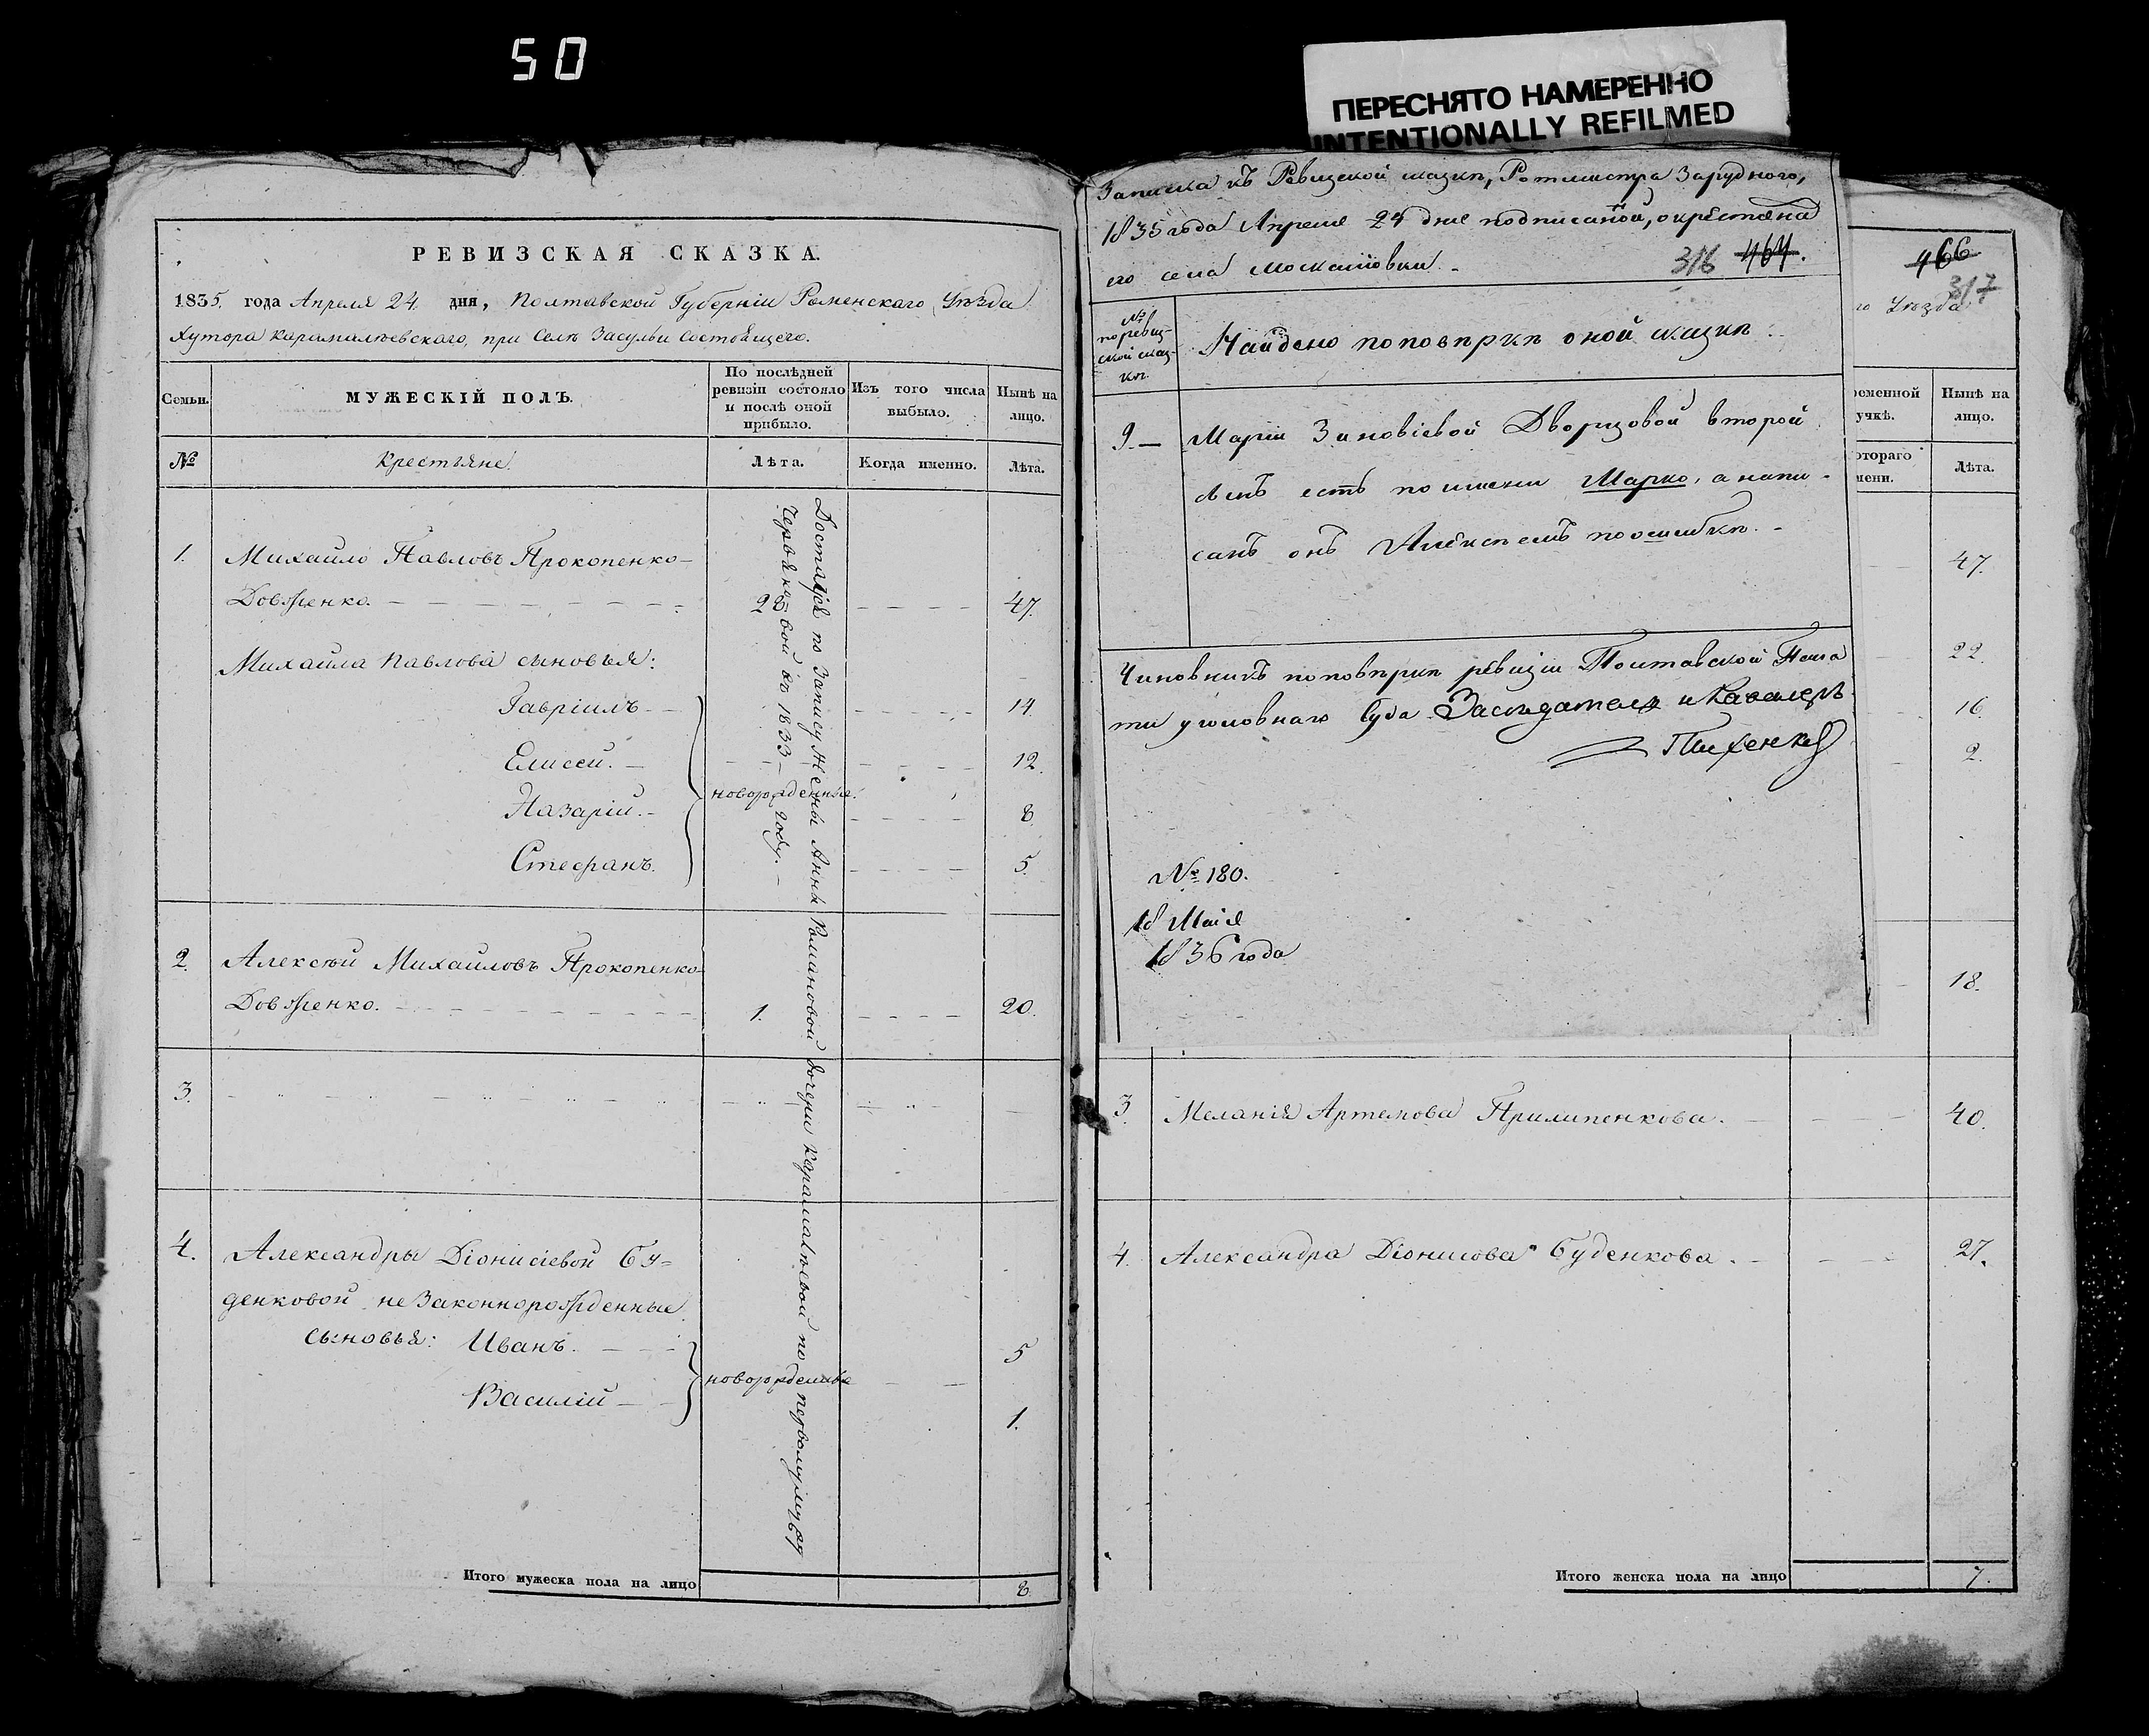 50
ПЕРЕСНЯТО НАМЕРЕННО
INTENTIONALLY REFILMED
РЕВИЗСКАЯ СКАЗКА.
1835. года Апреля 24. дня, Полтавской Губерніи Роменскаго Уѣзда
Хутора Карамалѣевскаго, при Селѣ Засульи состоящего.
Семьи.
МУЖЕСКІЙ ПОЛЪ.
По послѣдней
ревизіи состояло
и послѣ оной
прибыло.
Изъ того числа
выбыло.
Нынѣ на
лицо.
№
Крестьяне.
Лѣта.
Когда именно.
Лѣта.
1. Михайло Павловъ Прокопенко-
Довженко. 28 47.
Михаила Павлова сыновья:
Гавріилъ 14.
Елисей. 12.
новорожденныя.
Назарій. 8.
Стефанъ. 5.
2. Алексѣй Михайловъ Прокопенко-
Довженко. 1. 20.
3.
4. Александры Діонисіевой Бу=
денковой незаконнорожденные
сыновья: Иванъ. 5
новорожденныя
Василій 1.
Достался по Запису Жены Анны Романовой дочери Карамалѣевой по первому мужу
Червяковой въ 1833 году.
Итого мужеска пола на лицо 8.
Записка къ Ревизской сказкѣ, Ротмистра Зарудного,
1835 года Апреля 24 дня подписанной, о крестьяна
его села Москалювки.
316 464.
№
по ревиз-
ской сказ-
кѣ.
Найдено по повѣркѣ оной сказки
9. Маріи Зиновіевой Дворцовой второй
сынъ есть по имени Марко, а напи-
санъ онъ Алексѣемъ по ошибкѣ.
Чиновникъ по повѣркѣ ревизіи Полтавской Пала
ты уголовнаго Суда Засѣдатель и Кавалеръ
№ 180.
18 Маія
1836 года
466
317
го Уѣзда
ременной
учкѣ.
Нынѣ на
лицо.
отораго
мени.
Лѣта.
47.
22.
16.
2.
18.
3. Меланія Артемова Прилипенкова. 40.
4. Александра Діонисова Буденкова. 27.
Итого женска пола на лицо 7.